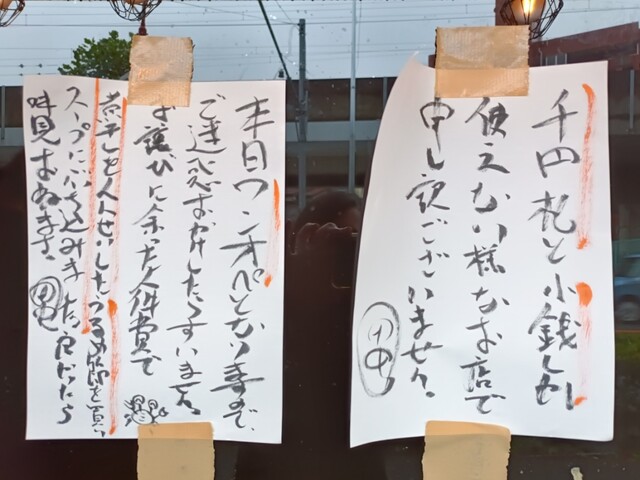 千円札と小銭しか
使えない様なお店で
申し訳ございません。
田中
本日ワンオペとなりますので、
ご迷惑おかけしたらすいません。
お詫びに余った人件費で
煮干しを入
うるめ節を買い
スープにぶち込みました 良かったら
味見